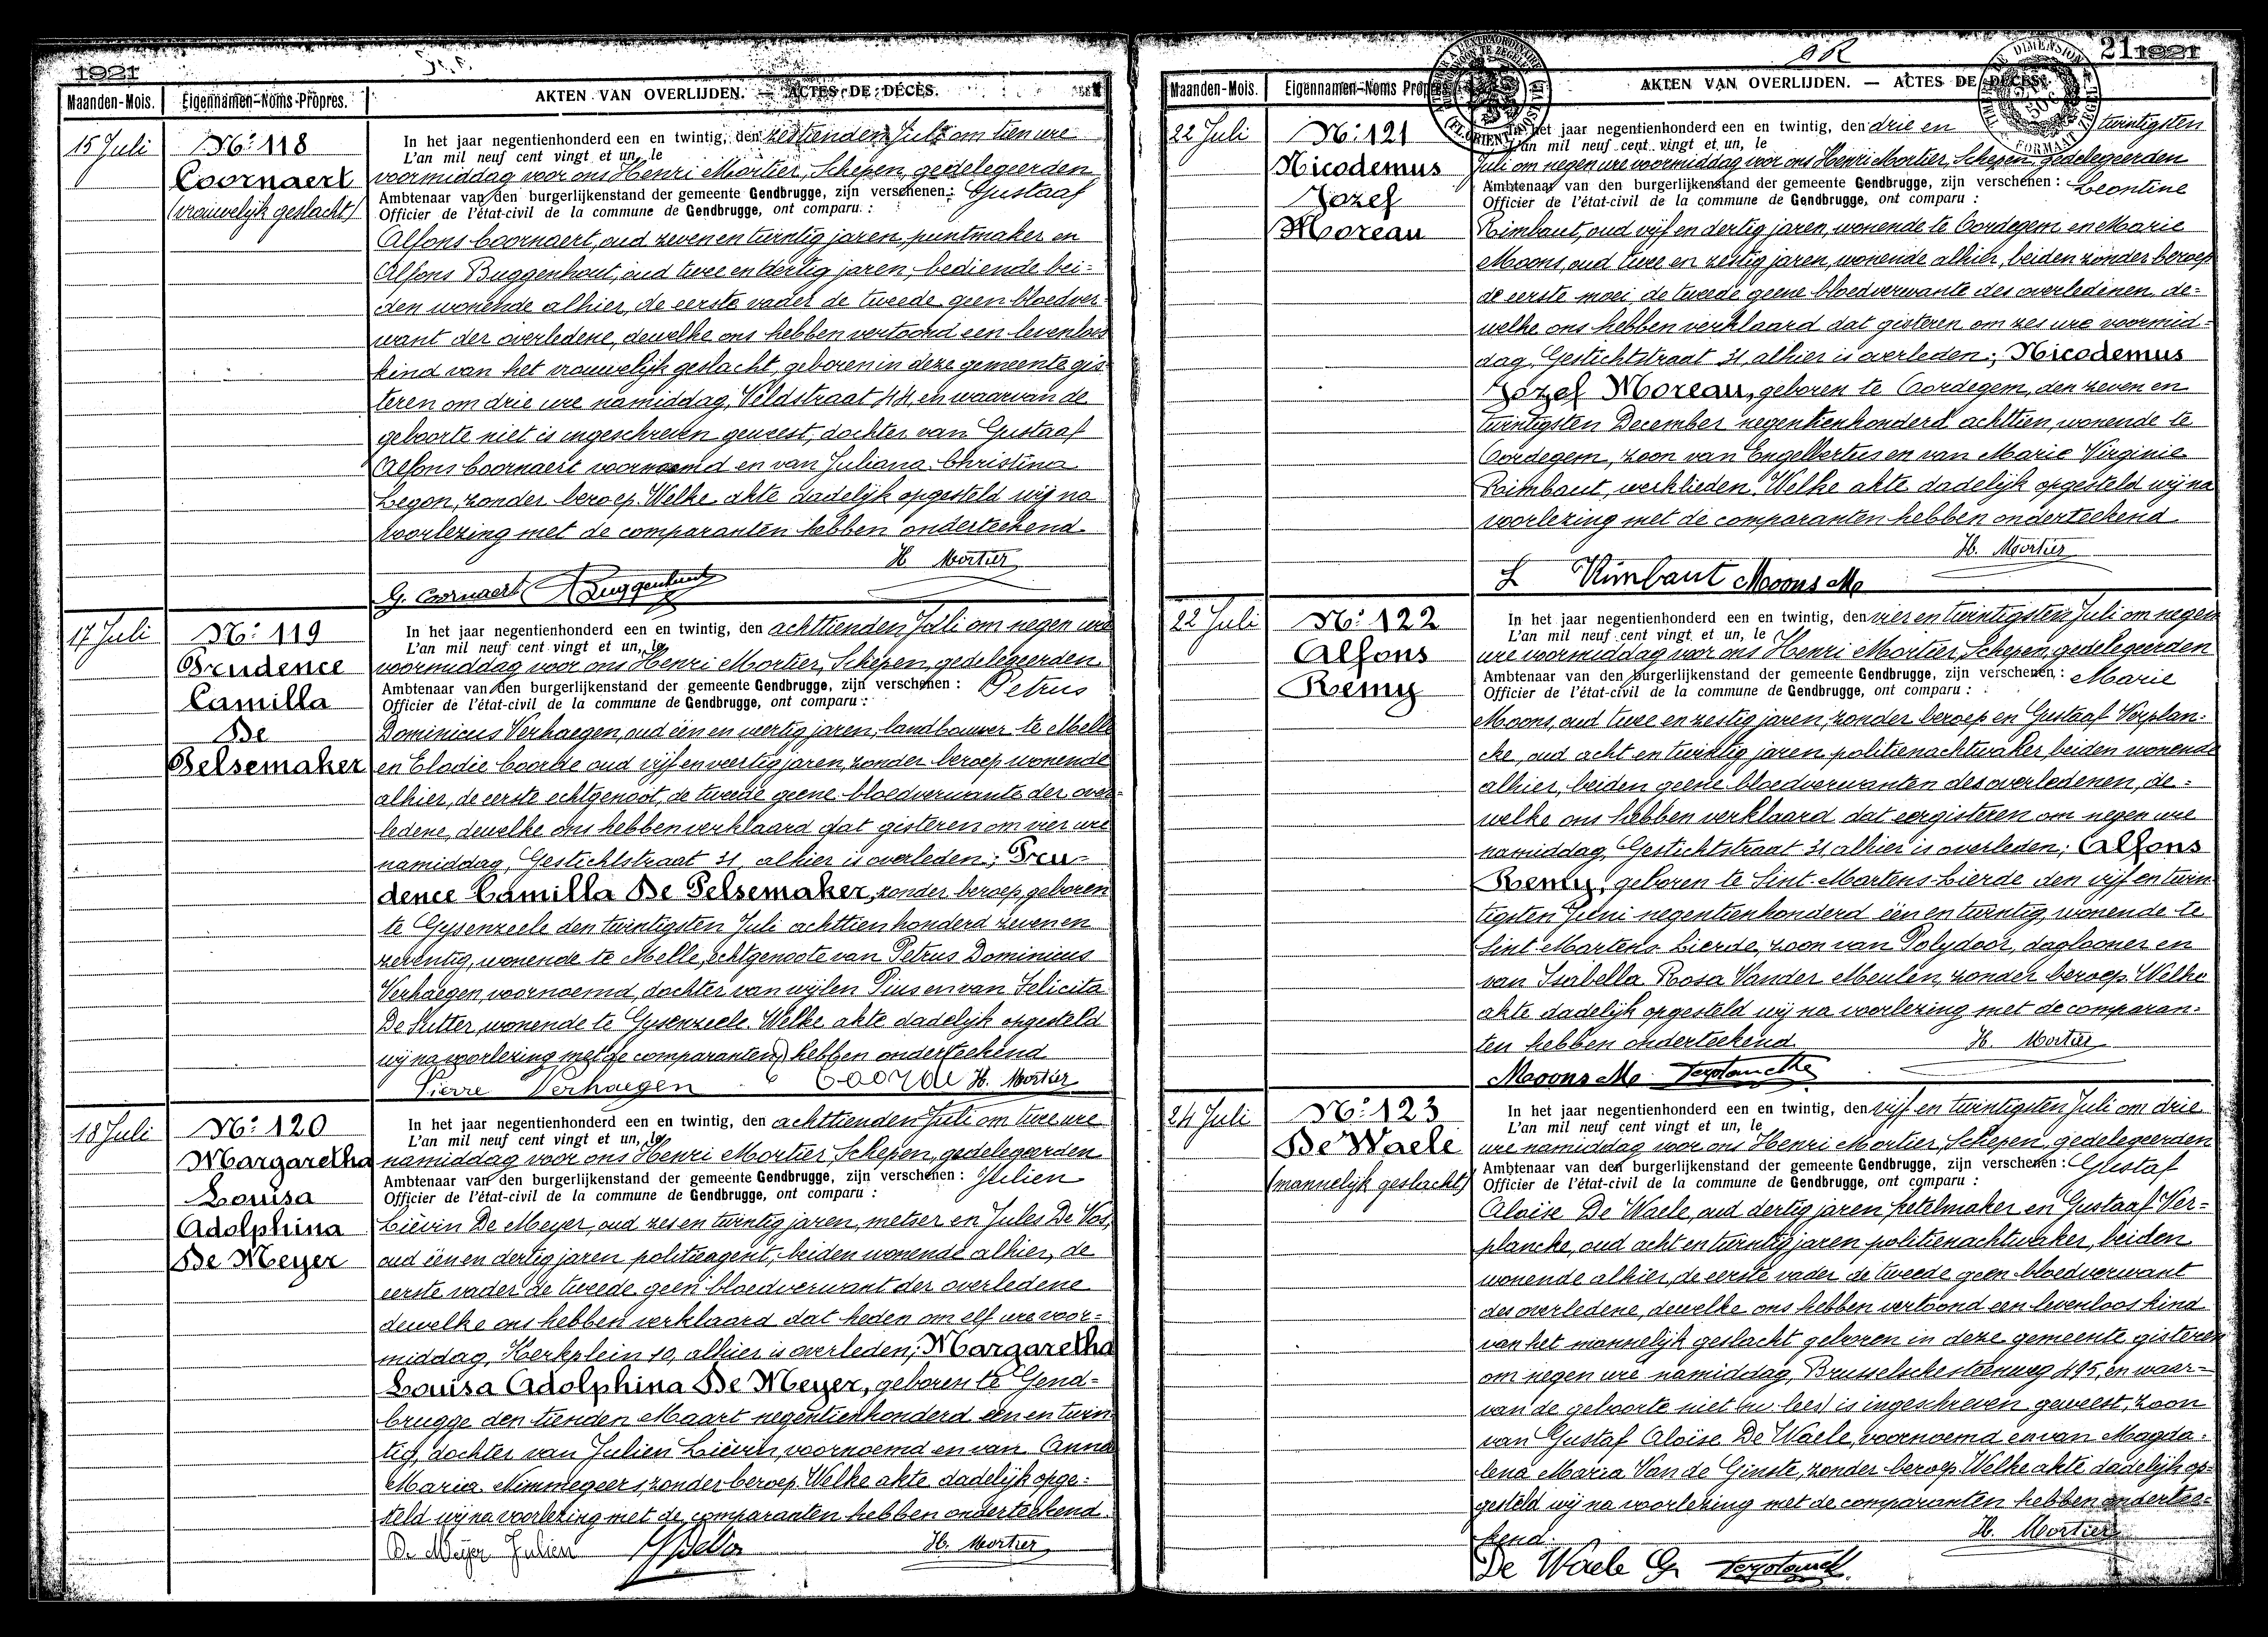 1921
Maanden-Mois. Eigennamen-Noms-Propres. AKTEN VAN OVERLIJDEN. — ACTES DE DÉCÈS.
15 Juli
Nº: 118
Coornaert
(vrouwelijk geslacht)
In het jaar negentienhonderd een en twintig, den zestienden Juli om tien ure
L'an mil neuf cent vingt et un, le
voormiddag voor ons Henri Mortier, Schepen, gedelegeerden
Ambtenaar van den burgerlijkenstand der gemeente Gendbrugge, zijn verschenen: Gustaaf
Officier de l'état-civil de la commune de Gendbrugge, ont comparu :
Alfons Coornaert, oud zeven en twintig jaren, puntmaker en
Alfons Buggenhout, oud twee en dertig jaren, bediende bei=
den wonende alhier, de eerste vader de tweede geen bloedver-
want der overledene, dewelke ons hebben vertoond een levenloos
kind van het vrouwelijk geslacht, geboren in deze gemeente gis
teren om drie ure namiddag, Veldstraat 44, en waarvan de
geboorte niet is ingeschreven geweest, dochter van Gustaaf
Alfons Coornaert voornoemd en van Juliana Christina
Legon, zonder beroep. Welke akte dadelijk opgesteld wij na
voorlezing met de comparanten hebben onderteekend
H. Mortier
G. Coornaert Buggenhout
17 Juli
Nº: 119
Prudence
Camilla
De
Pelsemaker
In het jaar negentienhonderd een en twintig, den achttienden Juli om negen ure
L'an mil neuf cent vingt et un, le
voormiddag voor ons Henri Mortier, Schepen, gedelegeerden
Ambtenaar van den burgerlijkenstand der gemeente Gendbrugge, zijn verschenen : Petrus
Officier de l'état-civil de la commune de Gendbrugge, ont comparu :
Dominicus Verhaegen, oud één en veertig jaren, landbouwer te Melle
en Elodie Coorde oud vijf en veertig jaren, zonder beroep wonende
alhier, de eerste echtgenoot, de tweede geene bloedverwante der over=
ledene, dewelke ons hebben verklaard dat gisteren om vier ure
namiddag, Gestichtstraat 31, alhier is overleden; Pru-
dence Camilla De Pelsemaker, zonder beroep, geboren
te Gysenzeele den twintigsten Juli achttienhonderd zeven en
zeventig, wonende te Melle, echtgenoote van Petrus Dominicus
Verhaegen, voornoemd, dochter van wijlen Pius en van Felicita
De Sutter, wonende te Gysenzeele. Welke akte dadelijk opgesteld
wij na voorlezing met de comparanten hebben onderteekend
Pierre Verhaegen E Coorde H. Mortier
18 Juli
Nº: 120
Margaretha
Louisa
Adolphina
De Meyer
In het jaar negentienhonderd een en twintig, den achttienden Juli om twee ure
L'an mil neuf cent vingt et un, le
namiddag voor ons Henri Mortier, Schepen, gedelegeerden
Ambtenaar van den burgerlijkenstand der gemeente Gendbrugge, zijn verschenen : Julien
Officier de l'état-civil de la commune de Gendbrugge, ont comparu :
Liévin De Meyer, oud zes en twintig jaren, metser en Jules De Vos,
oud één en dertig jaren politieagent, beiden wonende alhier, de
eerste vader de tweede geen bloedverwant der overledene
dewelke ons hebben verklaard dat heden om elf ure voor=
middag, Kerkplein 10, alhier is overleden; Margaretha
Louisa Adolphina De Meyer, geboren te Gend=
brugge den tienden Maart negentienhonderd een en twin
tig, dochter van Julien Liévin, voornoemd en van Anna
Maria Nimmegeers, zonder beroep. Welke akte dadelijk opge=
steld wij na voorlezing met de comparanten hebben onderteekend.
De Meyer Julien J De Vos H. Mortier
211921
Maanden-Mois. Eigennamen-Noms Propres. AKTEN VAN OVERLIJDEN. — ACTES DE DÉCÈS.
22 Juli
Nº: 121
Nicodemus
Jozef
Moreau
In het jaar negentienhonderd een en twintig, den drie en twintigsten
L'an mil neuf cent vingt et un, le
Juli om negen ure voormiddag voor ons Henri Mortier, Schepen, gedelegeerden
Ambtenaar van den burgerlijkenstand der gemeente Gendbrugge, zijn verschenen : Leontine
Officier de l'état-civil de la commune de Gendbrugge, ont comparu :
Rimbaut, oud vijf en dertig jaren, wonende te Oordegem en Marie
Moons, oud twee en zestig jaren, wonende alhier, beiden zonder beroep
de eerste moei, de tweede geene bloedverwante des overledenen, de=
welke ons hebben verklaard dat gisteren om zes ure voormid=
dag, Gestichtstraat 31, alhier is overleden; Nicodemus
Jozef Moreau, geboren te Oordegem, den zeven en
twintigsten December negentienhonderd achttien, wonende te
Oordegem, zoon van Engelbertus en van Marie Virginie
Rimbaut, werklieden. Welke akte dadelijk opgesteld wij na
voorlezing met de comparanten hebben onderteekend
H. Mortier
L Rimbaut Moons M
22 Juli
Nº: 122
Alfons
Remy
In het jaar negentienhonderd een en twintig, den vier en twintigsten Juli om negen
L'an mil neuf cent vingt et un, le
ure voormiddag voor ons Henri Mortier, Schepen, gedelegeerden
Ambtenaar van den burgerlijkenstand der gemeente Gendbrugge, zijn verschenen : Marie
Officier de l'état-civil de la commune de Gendbrugge, ont comparu :
Moons, oud twee en zestig jaren, zonder beroep en Gustaaf Verplan=
cke, oud acht en twintig jaren, politienachtwaker, beiden wonende
alhier, beiden geene bloedverwanten des overledenen, de=
welke ons hebben verklaard dat eergisteren om negen ure
namiddag, Gestichtstraat 31, alhier is overleden; Alfons
Remy, geboren te Sint-Martens-Lierde den vijf en twin
tigsten Juni negentienhonderd één en twintig, wonende te
Sint-Martens-Lierde, zoon van Polydoor, daglooner en
van Isabella Rosa Vander Meulen, zonder beroep. Welke
akte dadelijk opgesteld wij na voorlezing met de comparan=
ten hebben onderteekend H. Mortier
Moons M. Verplancke
24 Juli
Nº: 123
De Waele
(mannelijk geslacht)
In het jaar negentienhonderd een en twintig, den vijf en twintigsten Juli om drie
L'an mil neuf cent vingt et un, le
ure namiddag voor ons Henri Mortier, Schepen, gedelegeerden
Ambtenaar van den burgerlijkenstand der gemeente Gendbrugge, zijn verschenen : Gustaf
Officier de l'état-civil de la commune de Gendbrugge, ont comparu :
Aloïse De Waele, oud dertig jaren ketelmaker en Gustaaf Ver=
plancke, oud acht en twintig jaren politienachtwaker, beiden
wonende alhier, de eerste vader de tweede geen bloedverwant
des overledene, dewelke ons hebben vertoond een levenloos kind
van het mannelijk geslacht geboren in deze gemeente gisteren
om negen ure namiddag, Brusselschesteenweg 495, en waar=
van de geboorte niet is ingeschreven geweest, zoon
van Gustaf Aloïse De Waele, voornoemd en van Magda=
lena Maria Van de Ginste, zonder beroep. Welke akte dadelijk op=
gesteld wij na voorlezing met de comparanten hebben ondertee=
kend. H. Mortier
De Waele G. Verplancke